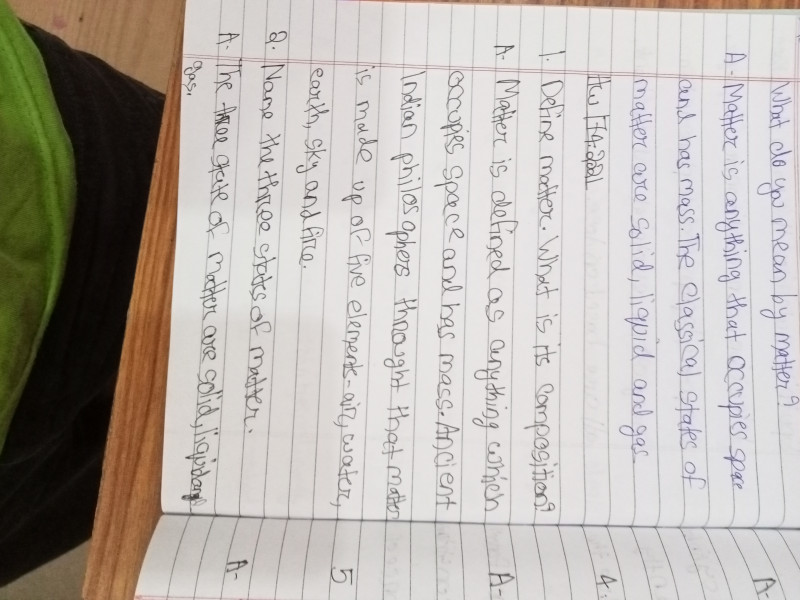 What do you mean by matter?
A- Matter is anything that occupies space
and has mass. The classical states of
matter are solid, liquid and gas
1. Define matter. What is its composition?
A- Matter is defined as anything which
occupies space and has mass. Ancient
Indian philosphers throught that matter
is made up of five elements-air, water,
earth, sky and fire.
2. Name the three states of matter.
A- The three gate of matter are solid, liquid and
gas.
A-
4.
A-
5
A-